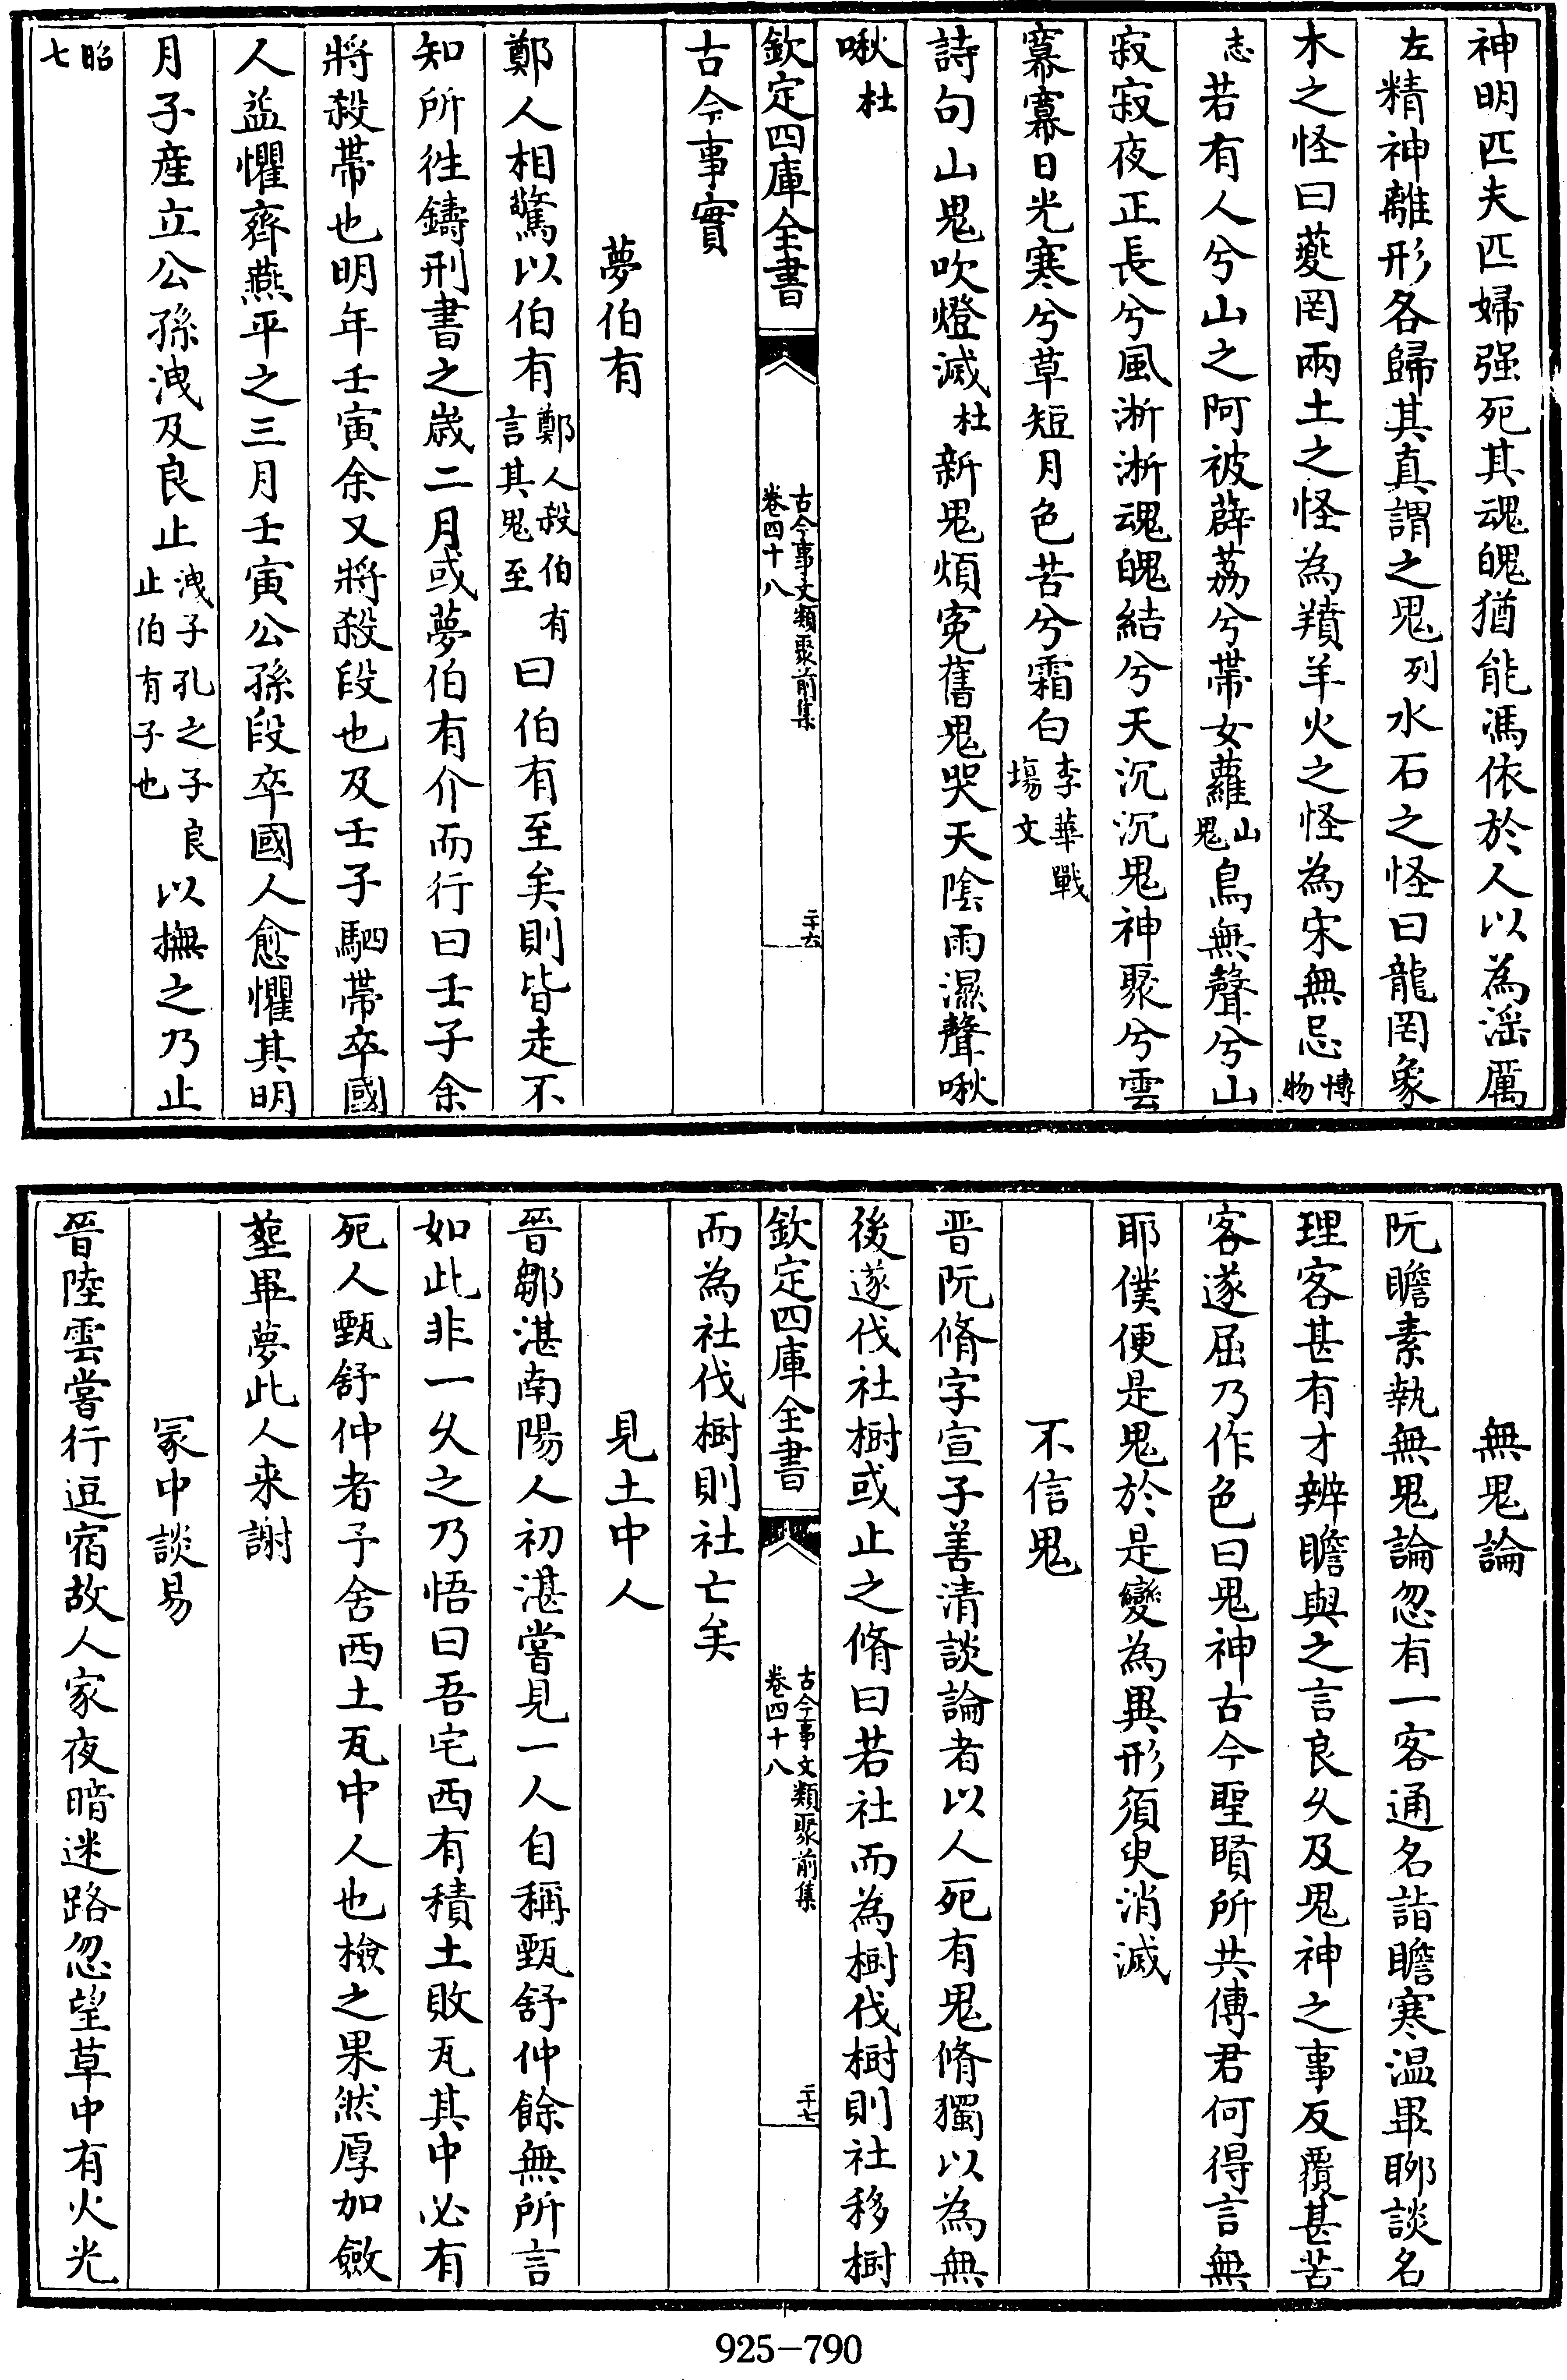 神明匹夫匹婦强死其魂魄猶能馮依於人以為滛厲
左精神離形各歸其真謂之鬼列水石之怪曰龍罔象
木之怪曰夔罔兩土之怪為羵羊火之怪為宋無忌博物
志若有人兮山之阿被薜荔兮帶女蘿山鬼鳥無聲兮山
寂寂夜正長兮風淅淅魂魄結兮天沉沉鬼神聚兮雲
冪冪日光寒兮草短月色苦兮霜白李華戰塲文
詩句山鬼吹燈滅杜新鬼煩寃舊鬼哭天陰雨濕聲啾
啾杜
欽定四庫全書
古今事文類聚前集
卷四十八
二十六
古今事實
夢伯有
鄭人相驚以伯有鄭人殺伯有言其鬼至曰伯有至矣則皆走不
知所往鑄刑書之歲二月或夢伯有介而行曰壬子余
將殺帶也明年壬寅余又將殺段也及壬子駟帶卒國
人益懼齊燕平之三月壬寅公孫段卒國人愈懼其明
月子產立公孫洩及良止洩子孔之子良止伯有子也以撫之乃止
昭七
無鬼論
阮瞻素執無鬼論忽有一客通名詣瞻寒温畢聊談名
理客甚有才辨瞻與之言良久及鬼神之事反覆甚苦
客遂屈乃作色曰鬼神古今聖賢所共傳君何得言無
耶僕便是鬼於是變為異形須臾消滅
不信鬼
晋阮脩字宣子善清談論者以人死有鬼脩獨以為無
後遂伐社樹或止之脩曰若社而為樹伐樹則社移樹
欽定四庫全書
古今事文類聚前集
卷四十八
二十七
而為社伐樹則社亡矣
見土中人
晉鄒湛南陽人初湛嘗見一人自稱甄舒仲餘無所言
如此非一久之乃悟曰吾宅西有積土敗瓦其中必有
死人甄舒仲者予舍西土瓦中人也檢之果然厚加斂
塟畢夢此人来謝
冢中談易
晉陸雲嘗行逗宿故人家夜暗迷路忽望草中有火光
925-790